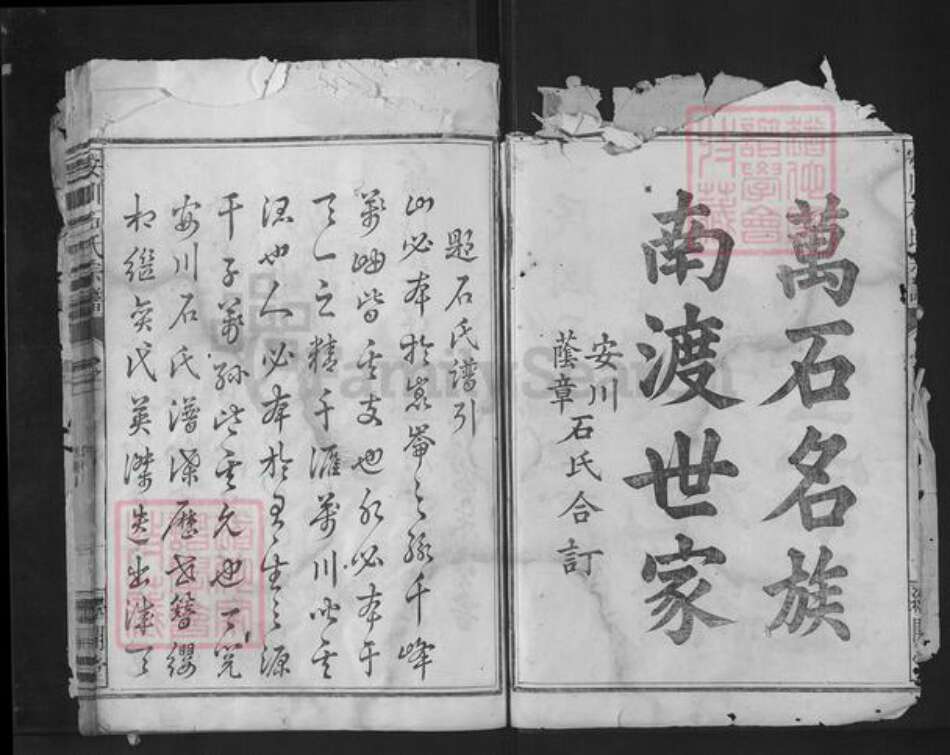 萬石名族
南渡世家
安川
蔭章
石氏合訂
題石氏譜引
山必本於崑崙之孫千峰
萬岫皆其支也水必本于
天一之精千滙萬川皆其
派也人必本於生之源
千子萬孫皆其允也
安川石氏譜歷世簪纓
相繼奕代英傑迭出
安川石氏宗譜
FamilySearch